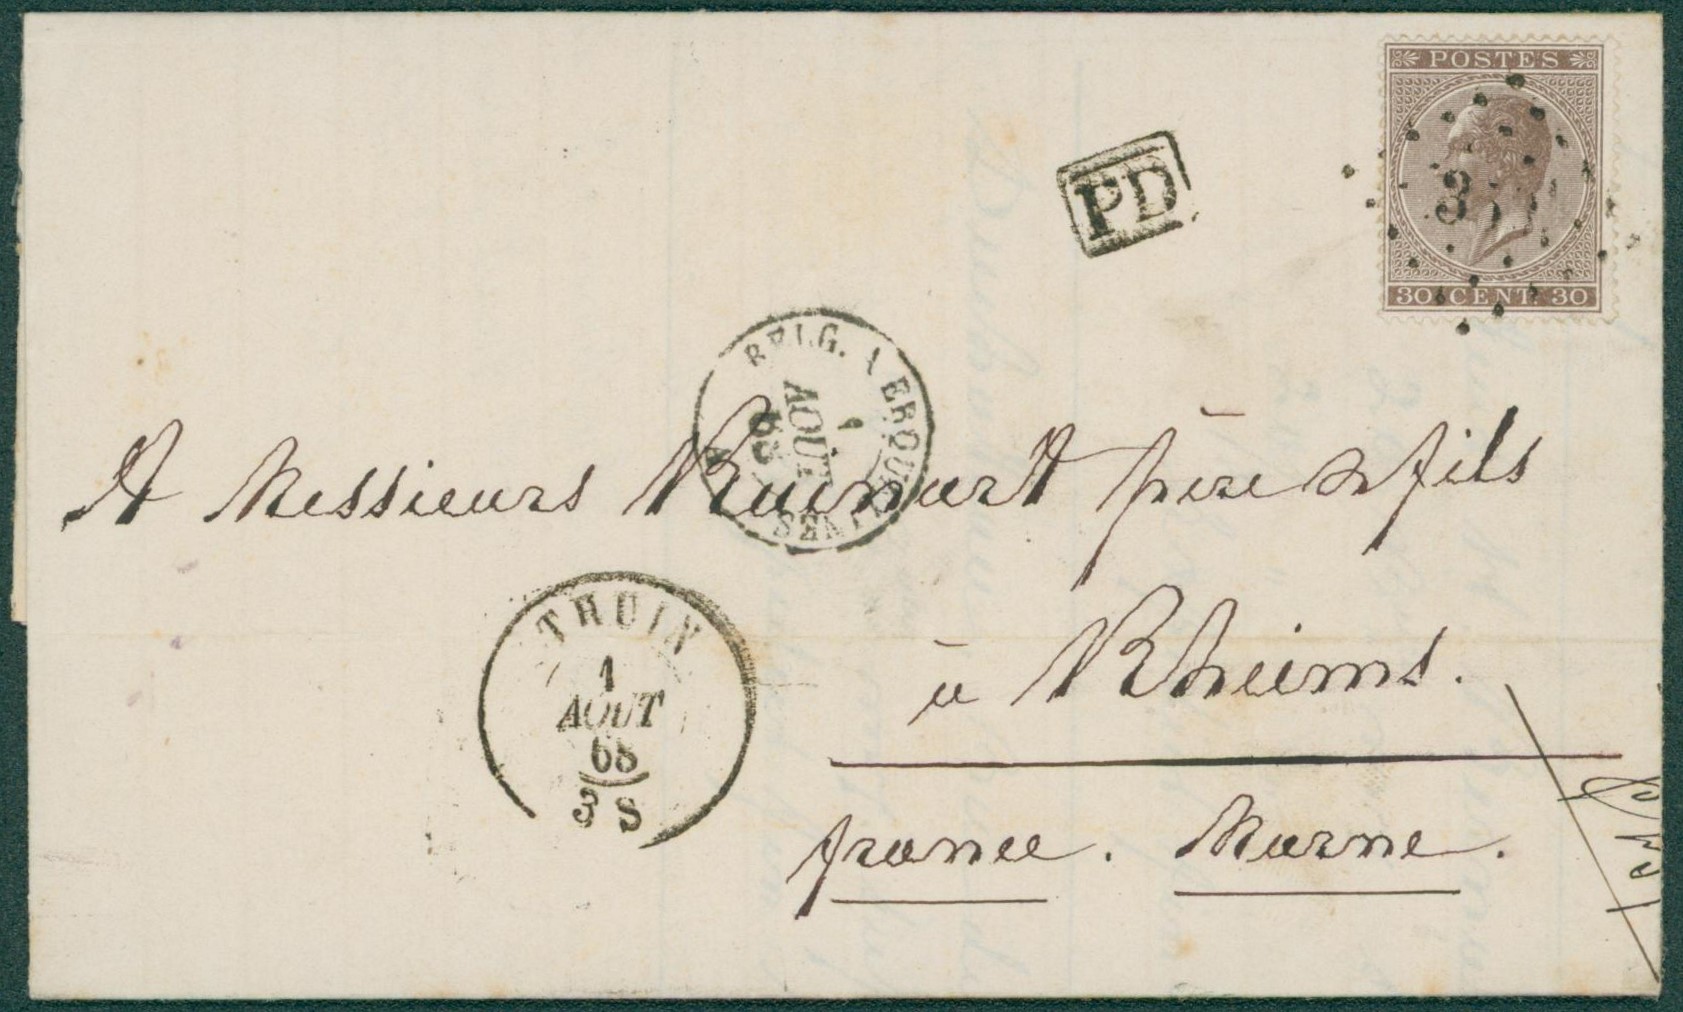 POSTES
3
30 CENT. 30
PD
BELG. A ERQUELINES
1
AOUT
68
A Messieurs Ruinart père & fils
THUIN
1
AOUT
68
3 S
à Rheims.
france. Marne.